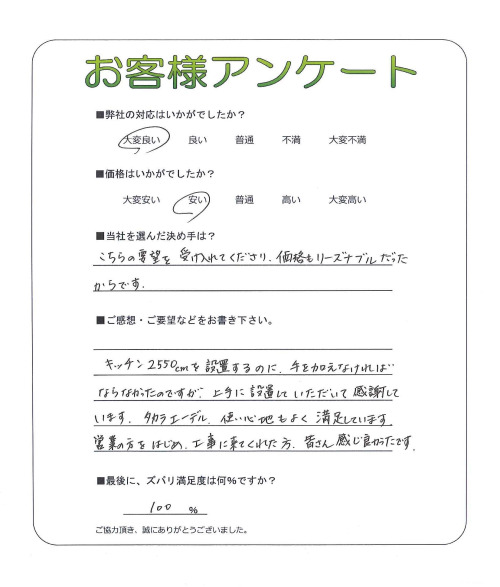 お客様アンケート
■弊社の対応はいかがでしたか？
大変良い 良い 普通 不満 大変不満
■価格はいかがでしたか？
大変安い 安い 普通 高い 大変高い
■当社を選んだ決め手は？
こちらの要望を受け入れてくださり、価格もリーズナブルだった
からです。
■ご感想・ご要望などをお書き下さい。
キッチン2550cmを設置するのに、手を加えなければ
ならなかったのですが、上手に設置していただいて感謝して
います。タカラエーデル、使い心地もよく満足しています。
営業の方をはじめ、工事に来てくれた方、皆さん感じ良かったです。
■最後に、ズバリ満足度は何％ですか？
100 %
ご協力頂き、誠にありがとうございました。